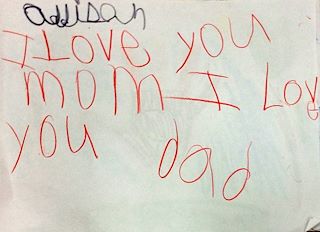 addisan
I Love you
mom I Love
you dad